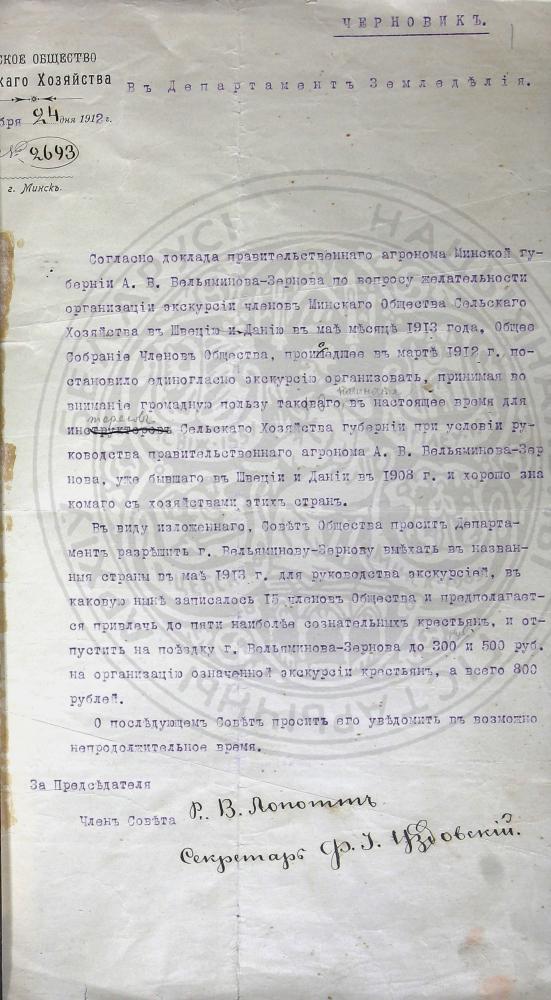 ЧЕРНОВИКЪ.
СКОЕ ОБЩЕСТВО
каго Хозяйства
Въ Департаментъ Земледѣлія.
бря 24 дня 1912 г.
№ 2693
г. Минскъ.
Согласно доклада правительственнаго агронома Минской гу-
берніи А. В. Вельяминова-Зернова по вопросу желательности
организаціи экскурсіи членовъ Минскаго Общества Сельскаго
Хозяйства въ Швецію и Данію въ маѣ мѣсяцѣ 1913 года, Общее
Собраніе Членовъ Общества, происшедшее въ мартѣ 1912 г. по-
становило единогласно экскурсію организовать, принимая во
вниманіе громадную пользу таковаго въ настоящее время для
интересовъ Сельскаго Хозяйства губерніи при условіи ру-
ководства правительственнаго агронома А. В. Вельяминова-Зер
нова, уже бывшаго въ Швеціи и Даніи въ 1908 г. и хорошо зна
комаго съ хозяйствами этихъ странъ.
Въ виду изложеннаго, Совѣтъ Общества проситъ Департа-
ментъ разрѣшить г. Вельяминову-Зернову выѣхать въ назван-
ныя страны въ маѣ 1913 г. для руководства экскурсіей, въ
каковую нынѣ записалось 15 членовъ Общества и предполагает-
ся привлечь до пяти наиболѣе сознательныхъ крестьянъ, и от-
пустить на поѣздку г. Вельяминова-Зернова до 300 и 500 руб.
на организацію означенной экскурсіи крестьянъ, а всего 800
рублей.
О послѣдующемъ Совѣтъ проситъ его увѣдомить въ возможно
непродолжительное время.
За Предсѣдателя
Членъ Совѣта Р. В. Лопоттъ
Секретарь Ф. І. Уздовскій.